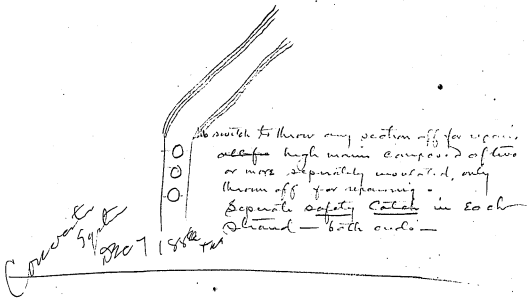 switch to throw any section off for repairs
high mains composed of two
or more separately insulated, only
thrown off for repairing.
Separate safety Catch in Each
Strand — both ends —
Converter
System
Dec 7 188